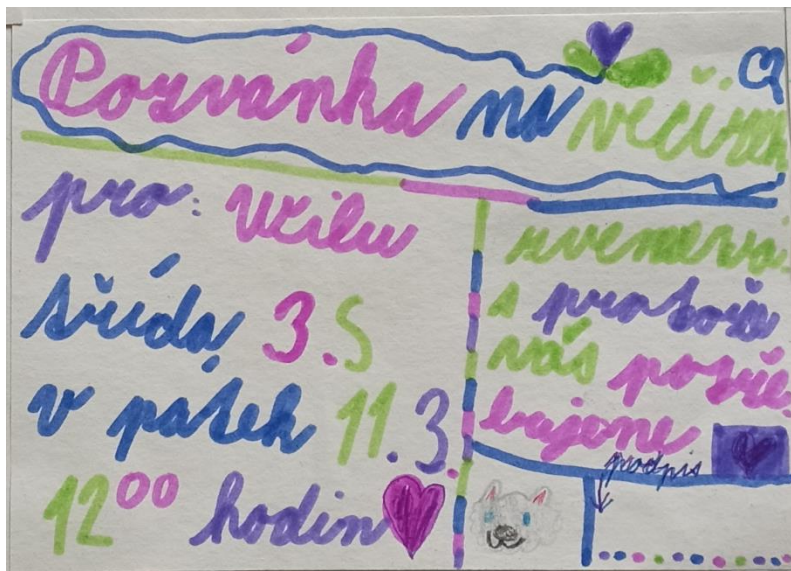 Pozvánka na večírek
pro: Včilu
třída 3.S
v pátek 11.3.
12⁰⁰ hodin
zvemevás
a protože
vás potře-
bujeme
podpis